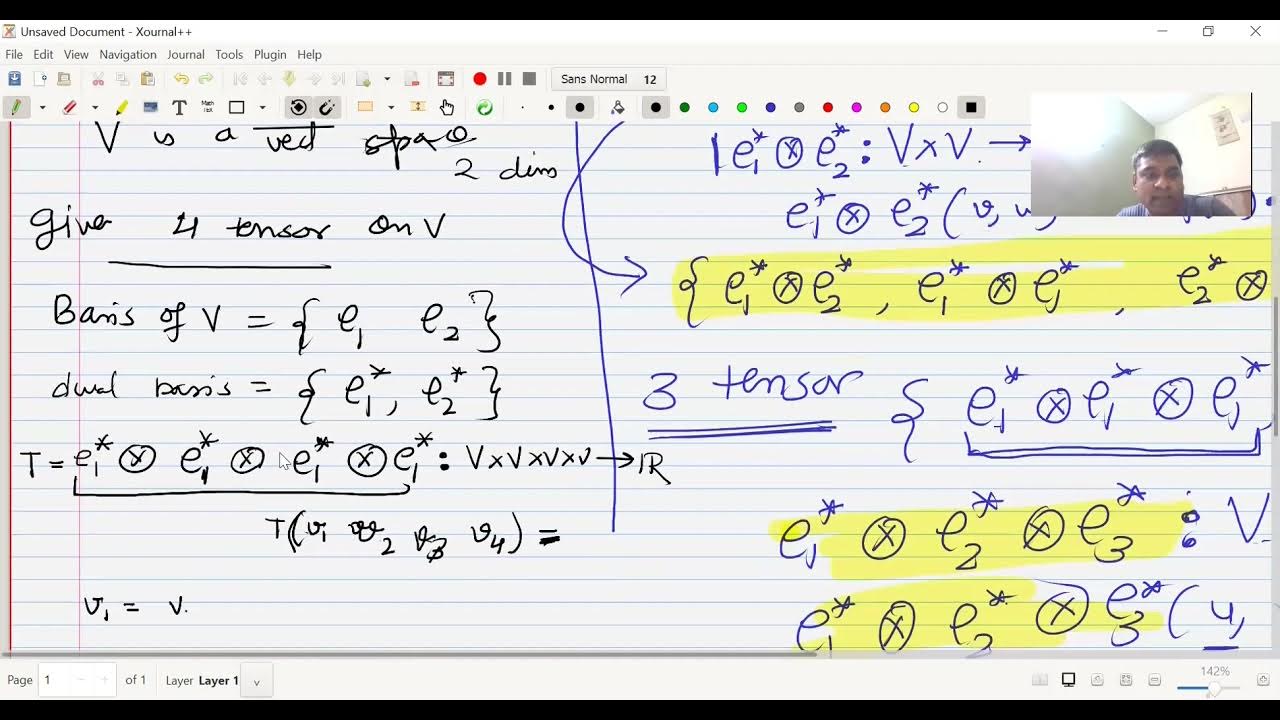 Unsaved Document - Xournal++
File Edit View Navigation Journal Tools Plugin Help
Sans Normal 12
V is a vect space
2 dim
Given 4 tensor on V
Basis of V = { e₁ e₂ }
dual basis = { e₁*, e₂* }
T = e₁* ⊗ e₁* ⊗ e₁* ⊗ e₁* : V×V×V×V → ℝ
T(v₁ v₂ v₃ v₄) =
v₁ = v.
e₁* ⊗ e₂* : V×V →
e₁* ⊗ e₂* (v,
{ e₁* ⊗ e₂* , e₁* ⊗ e₁* , e₂* ⊗
3 tensor { e₁* ⊗ e₁* ⊗ e₁*
e₁* ⊗ e₂* ⊗ e₃* : V
e₁* ⊗ e₂* ⊗ e₃* ( u,
Page 1 of 1 Layer Layer 1 142%